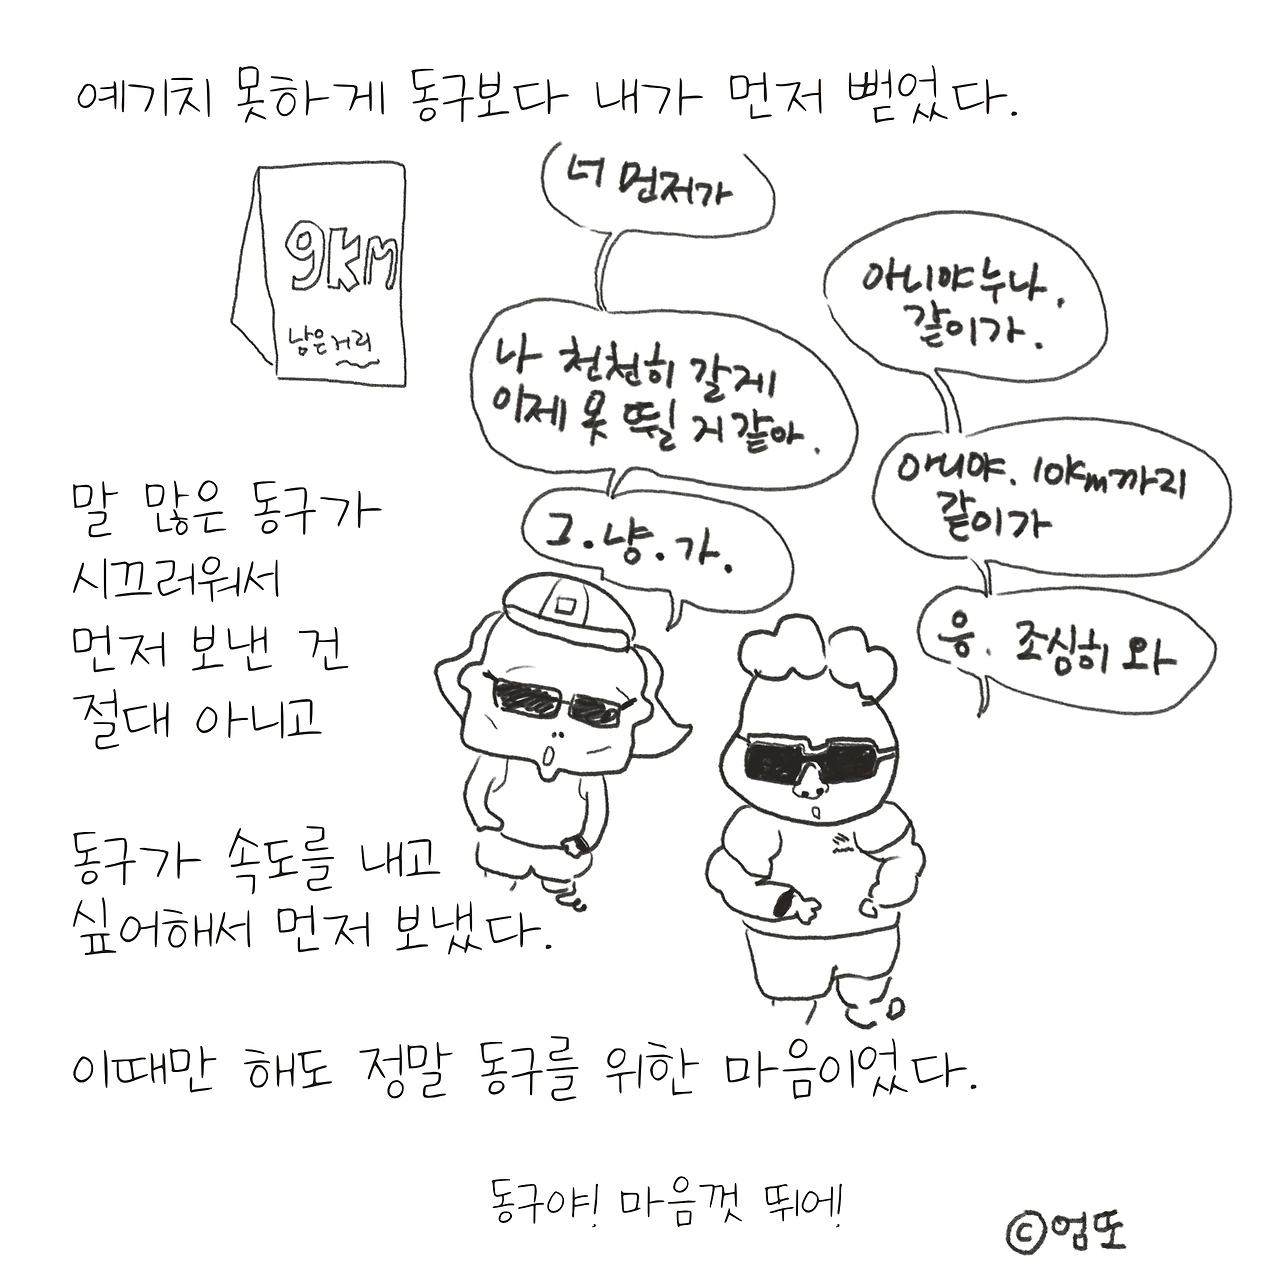 예기치 못하게 동구보다 내가 먼저 뻗었다.
9km
남은거리
너 먼저가
아니야 누나.
같이가.
나 천천히 갈게
이제 못 뛸 거 같아.
아니야. 10km까지
같이가
그.냥.가.
응. 조심히 와
말 많은 동구가
시끄러워서
먼저 보낸 건
절대 아니고
동구가 속도를 내고
싶어해서 먼저 보냈다.
이때만 해도 정말 동구를 위한 마음이었다.
동구야! 마음껏 뛰에!
©엄또